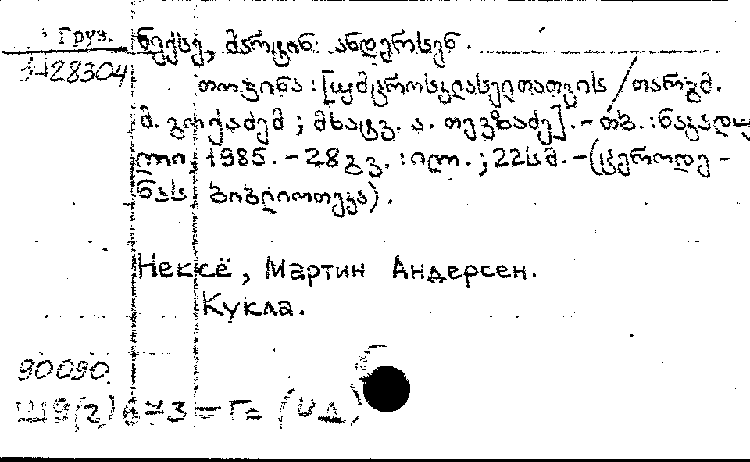 Груз.
ნექსე, მარტინ ანდერსენ.
3-128304
თოჯინა : [უმცროსკლასელთათვის / თარგმ.
მ. გოქაძემ ; მხატვ. ა. თევზაძე]. - თბ. : ნაკადუ
ლი, 1985. - 28 გვ. : ილ. ; 22 სმ. - (ცეროდე -
ნას ბიბლიოთეკა).
Нексё, Мартин Андерсен.
Кукла.
90090
Ш9(2)673 - Г=(ИД)